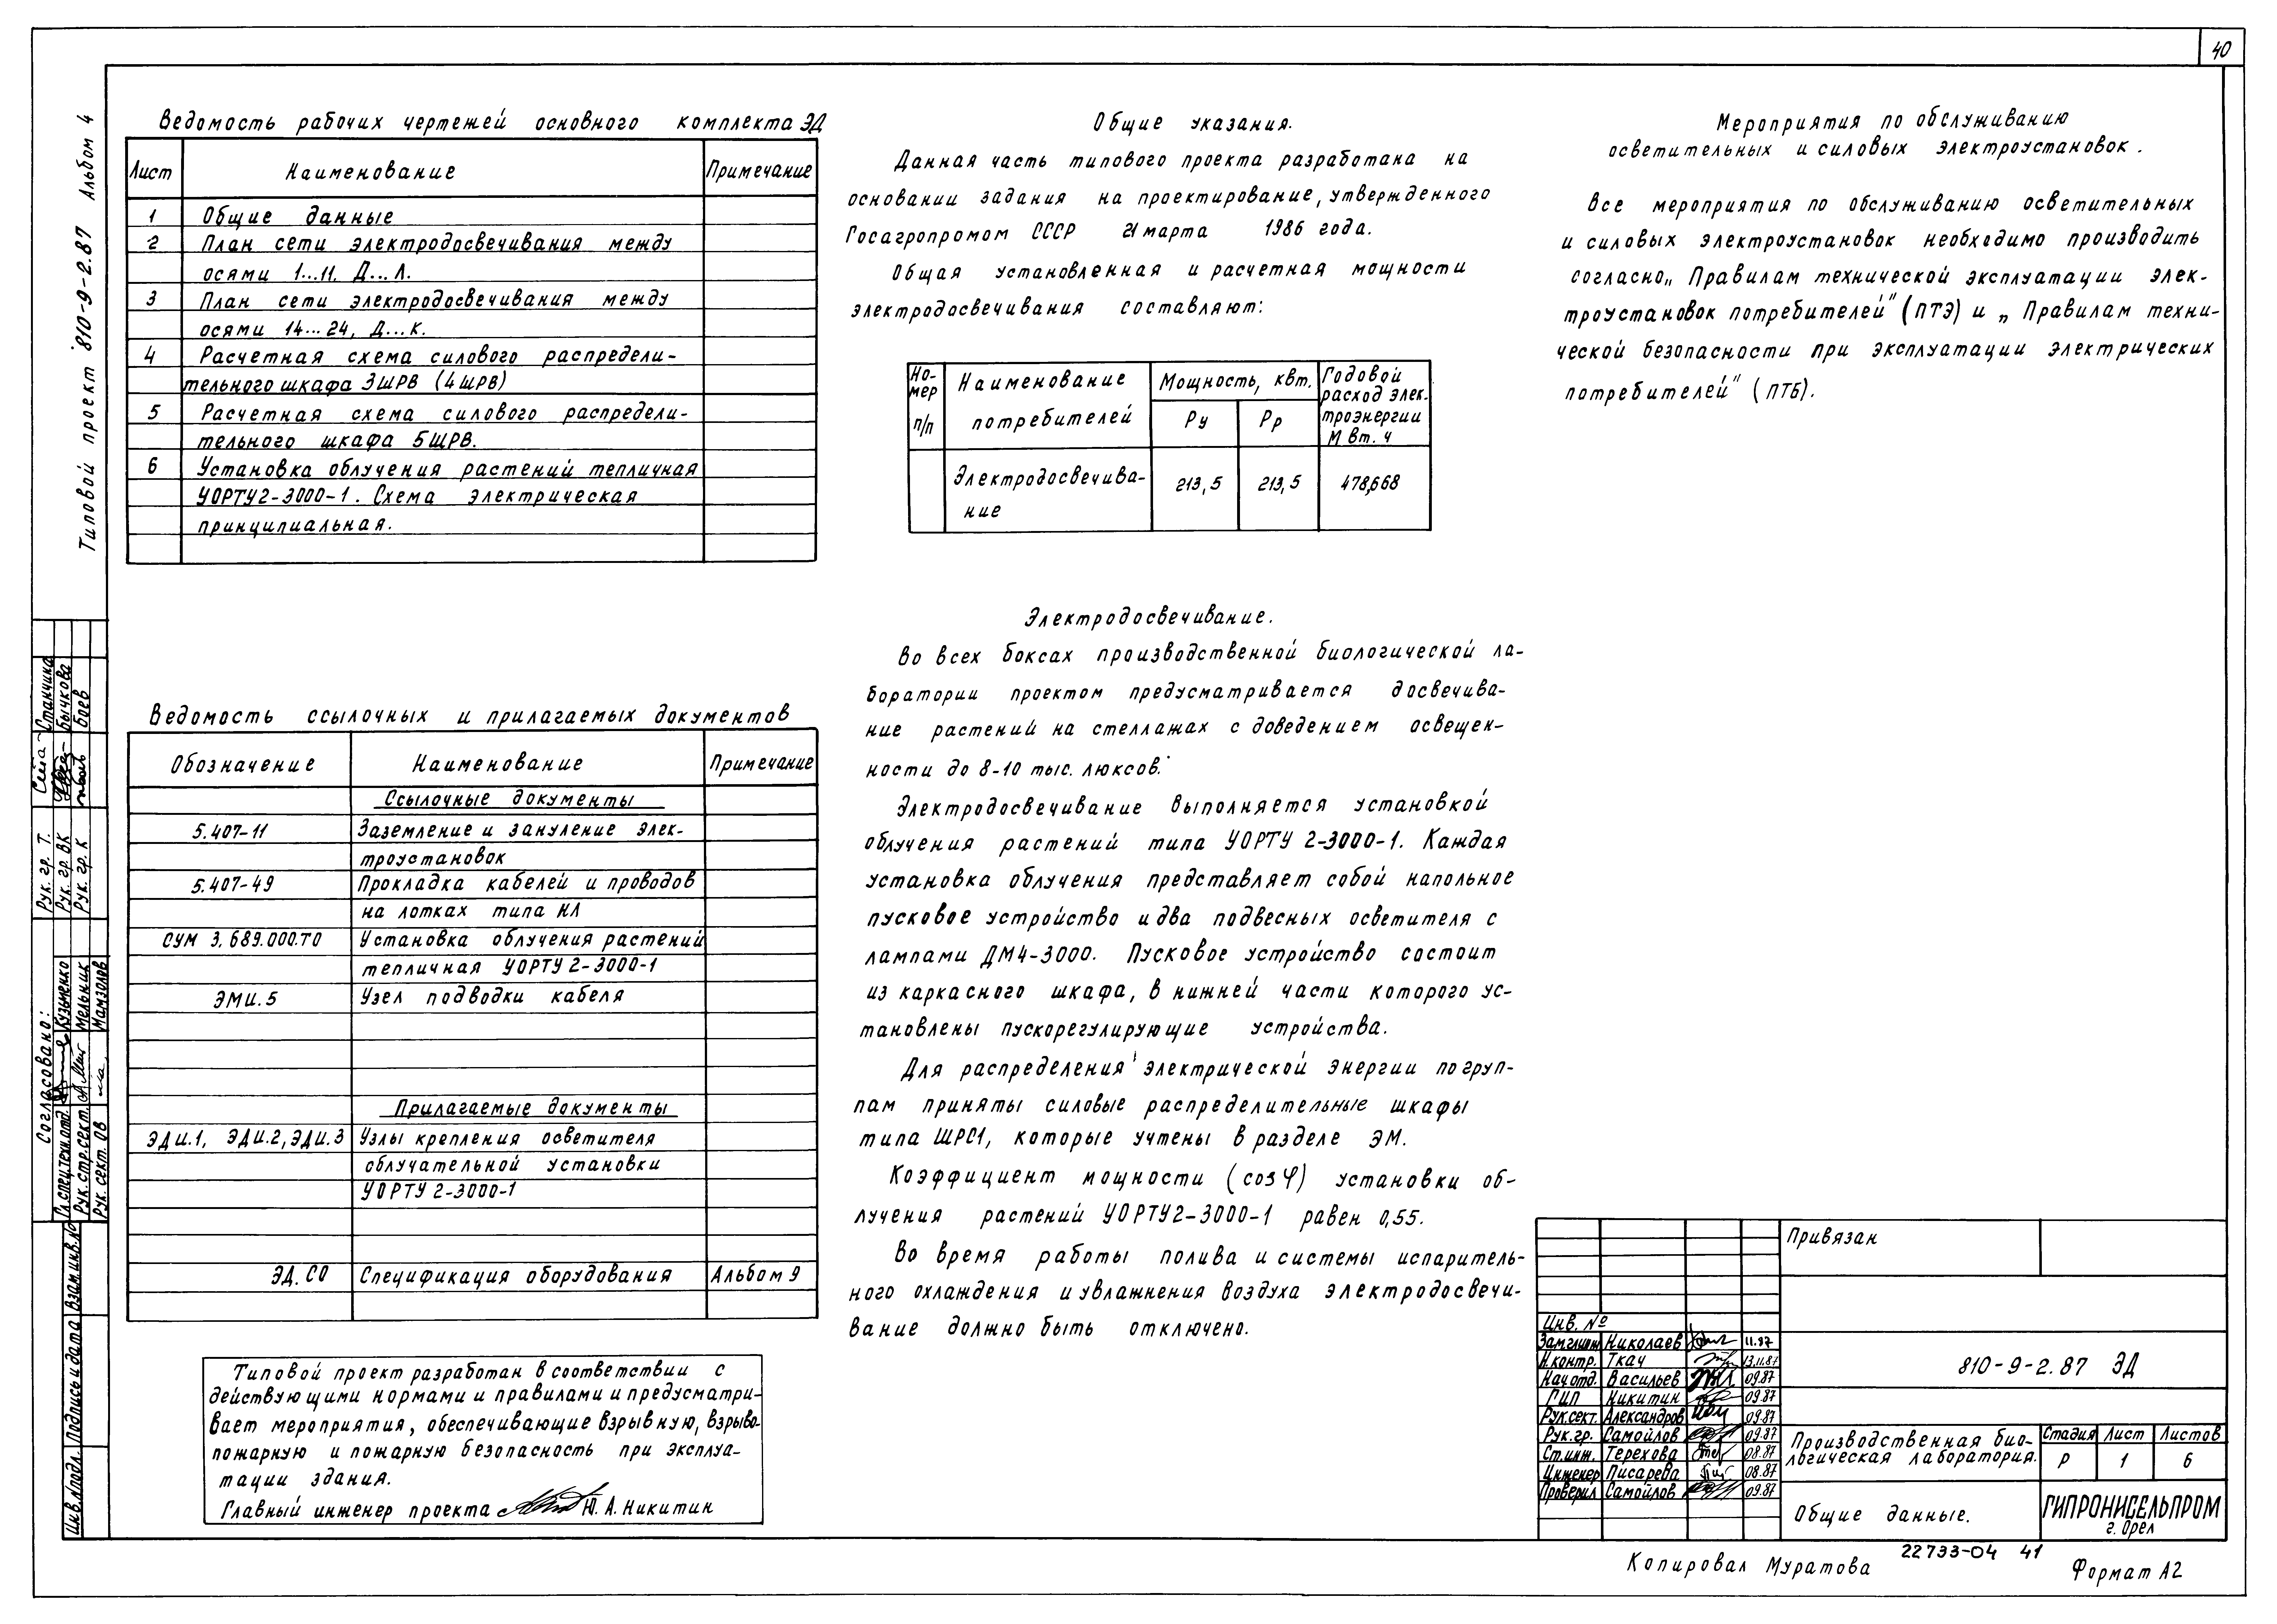 40
Типовой проект 810-9-2.87 Альбом 4
Ведомость рабочих чертежей основного комплекта ЭД
Лист Наименование Примечание
1 Общие данные
2 План сети электродосвечивания между
осями 1...11, Д...Л.
3 План сети электродосвечивания между
осями 14...24, Д...К.
4 Расчетная схема силового распредели-
тельного шкафа 3ШРВ (4ШРВ)
5 Расчетная схема силового распредели-
тельного шкафа 5ШРВ.
6 Установка облучения растений тепличная
УОРТУ2-3000-1. Схема электрическая
принципиальная.
Ведомость ссылочных и прилагаемых документов
Обозначение Наименование Примечание
Ссылочные документы
5.407-11 Заземление и зануление элек-
троустановок
5.407-49 Прокладка кабелей и проводов
на лотках типа НЛ
СУМ 3.689.000.ТО Установка облучения растений
тепличная УОРТУ 2-3000-1
ЭМИ.5 Узел подводки кабеля
Прилагаемые документы
ЭДИ.1, ЭДИ.2, ЭДИ.3 Узлы крепления осветителя
облучательной установки
УОРТУ 2-3000-1
ЭД.СО Спецификация оборудования Альбом 9
Типовой проект разработан в соответствии с
действующими нормами и правилами и предусматри-
вает мероприятия, обеспечивающие взрывную, взрыво-
пожарную и пожарную безопасность при эксплуа-
тации здания.
Главный инженер проекта Ю.А. Никитин
Общие указания.
Данная часть типового проекта разработана на
основании задания на проектирование, утвержденного
Госагропромом СССР 21 марта 1986 года.
Общая установленная и расчетная мощности
электродосвечивания составляют:
Но-
мер
п/п
Наименование
потребителей
Мощность, квт.
Ру Рр
Годовой
расход элек-
троэнергии
М вт. ч
Электродосвечива-
ние
213,5 213,5 478,668
Электродосвечивание.
Во всех боксах производственной биологической ла-
боратории проектом предусматривается досвечива-
ние растений на стеллажах с доведением освещен-
ности до 8-10 тыс. люксов.
Электродосвечивание выполняется установкой
облучения растений типа УОРТУ 2-3000-1. Каждая
установка облучения представляет собой напольное
пусковое устройство и два подвесных осветителя с
лампами ДМ4-3000. Пусковое устройство состоит
из каркасного шкафа, в нижней части которого ус-
тановлены пускорегулирующие устройства.
Для распределения электрической энергии по груп-
пам приняты силовые распределительные шкафы
типа ШРС1, которые учтены в разделе ЭМ.
Коэффициент мощности (cos φ) установки об-
лучения растений УОРТУ2-3000-1 равен 0,55.
Во время работы полива и системы испаритель-
ного охлаждения и увлажнения воздуха электродосвечи-
вание должно быть отключено.
Мероприятия по обслуживанию
осветительных и силовых электроустановок.
Все мероприятия по обслуживанию осветительных
и силовых электроустановок необходимо производить
согласно „Правилам технической эксплуатации элек-
троустановок потребителей" (ПТЭ) и „Правилам техни-
ческой безопасности при эксплуатации электрических
потребителей" (ПТБ).
Согласовано:
Рук. гр. Т. Станчика
Рук. гр. ВК Бычкова
Рук. гр. К Боев
Гл.спец.техн.отд. Кузьменко
Рук.стр.сект. Мельник
Рук. сект. ОВ Мамзолов
Инв.№подл. Подпись и дата Взам.инв.№
Привязан
Инв. №
Николаев 11.87
Н.контр. Ткач 13.11.87
Нач.отд. Васильев 09.87
ГИП Никитин 09.87
Рук.сект. Александров 09.87
Рук.гр. Самойлов 09.87
Ст.инж. Терехова 08.87
Инженер Писарева 08.87
Проверил Самойлов 09.87
810-9-2.87 ЭД
Производственная био-
логическая лаборатория.
Стадия Лист Листов
Р 1 6
Общие данные.
ГИПРОНИСЕЛЬПРОМ
г. Орел
22733-04 41
Копировал Муратова
Формат А2